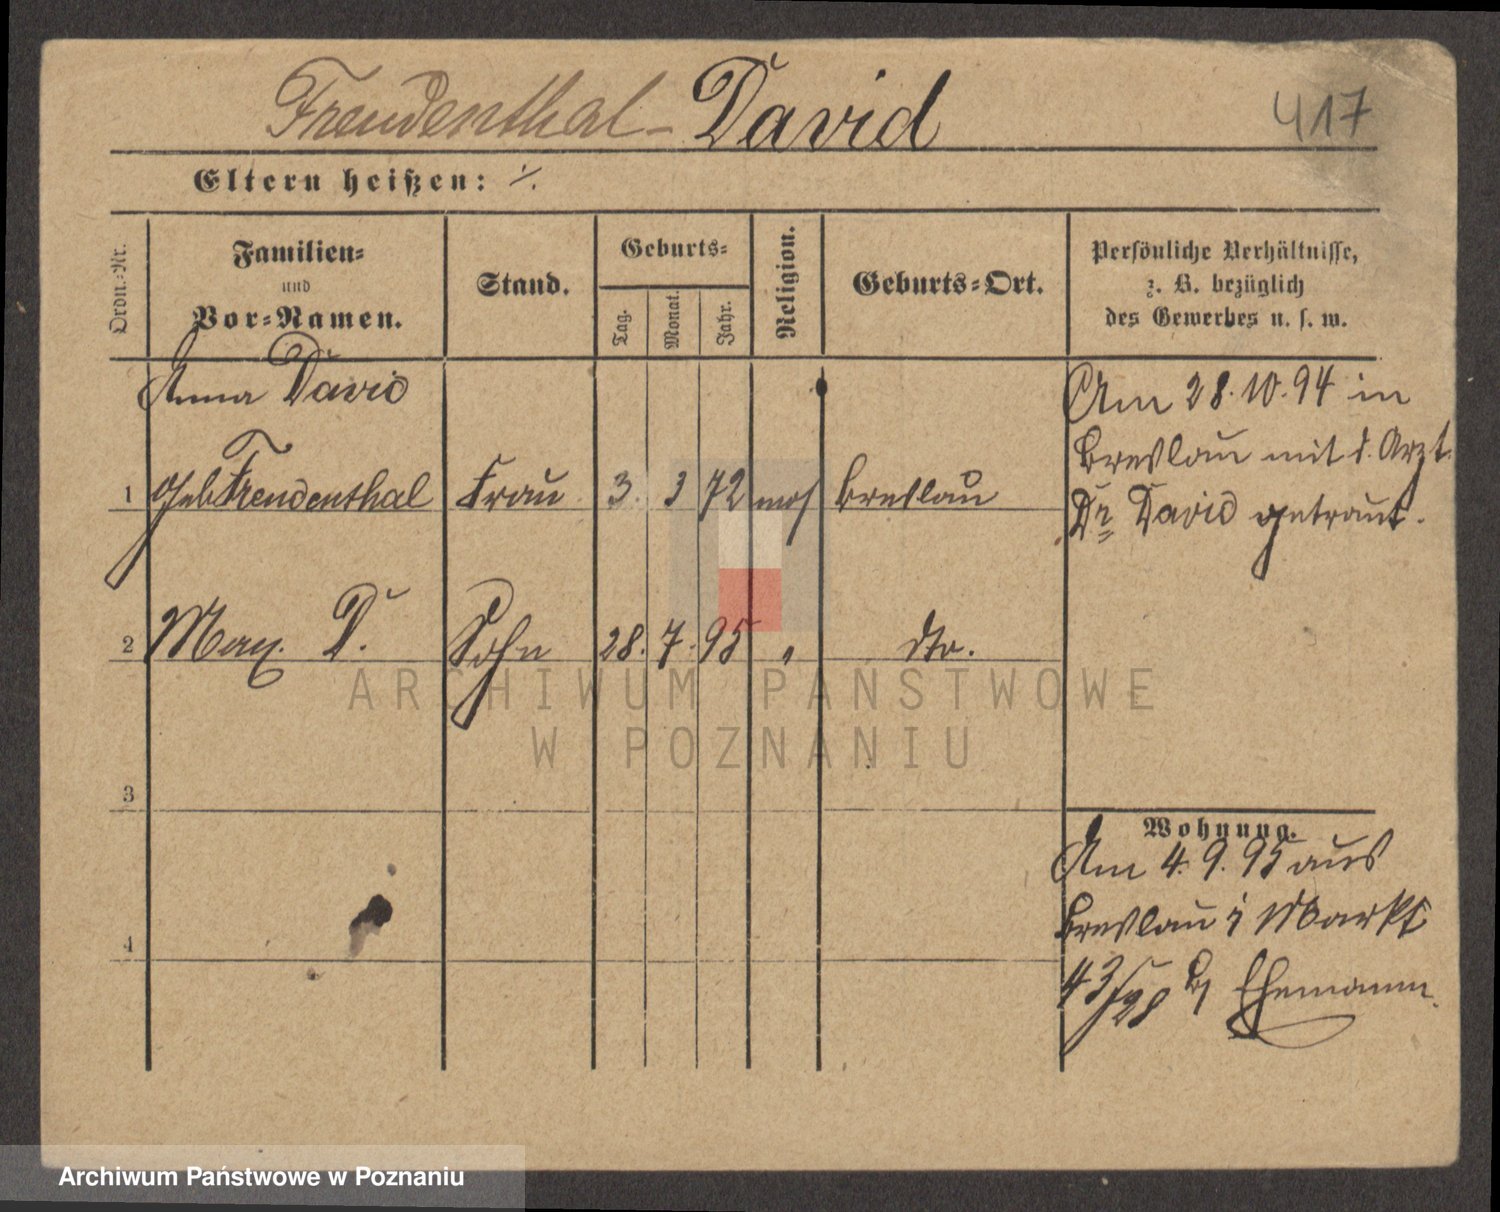 Freudenthal - David
417
Eltern heißen: ·/.
Ordn.-Nr.
Familien-
und
Vor-Namen.
Stand.
Geburts-
Tag.
Monat.
Jahr.
Religion.
Geburts-Ort.
Persönliche Verhältnisse,
z. B. bezüglich
des Gewerbes u. s. w.
Anna David
1 geb. Freudenthal Frau 3. 3 72 mos Breslau
Am 28.10.94 in
Breslau mit d. Arzt
Dr David getraut.
2 Max. D. Sohn 28. 7. 95 " dto.
3
4
Wohnung.
Am 4. 9. 95 aus
Breslau Markt
43/28 Ehemann.
ARCHIWUM PAŃSTWOWE
W POZNANIU
Archiwum Państwowe w Poznaniu